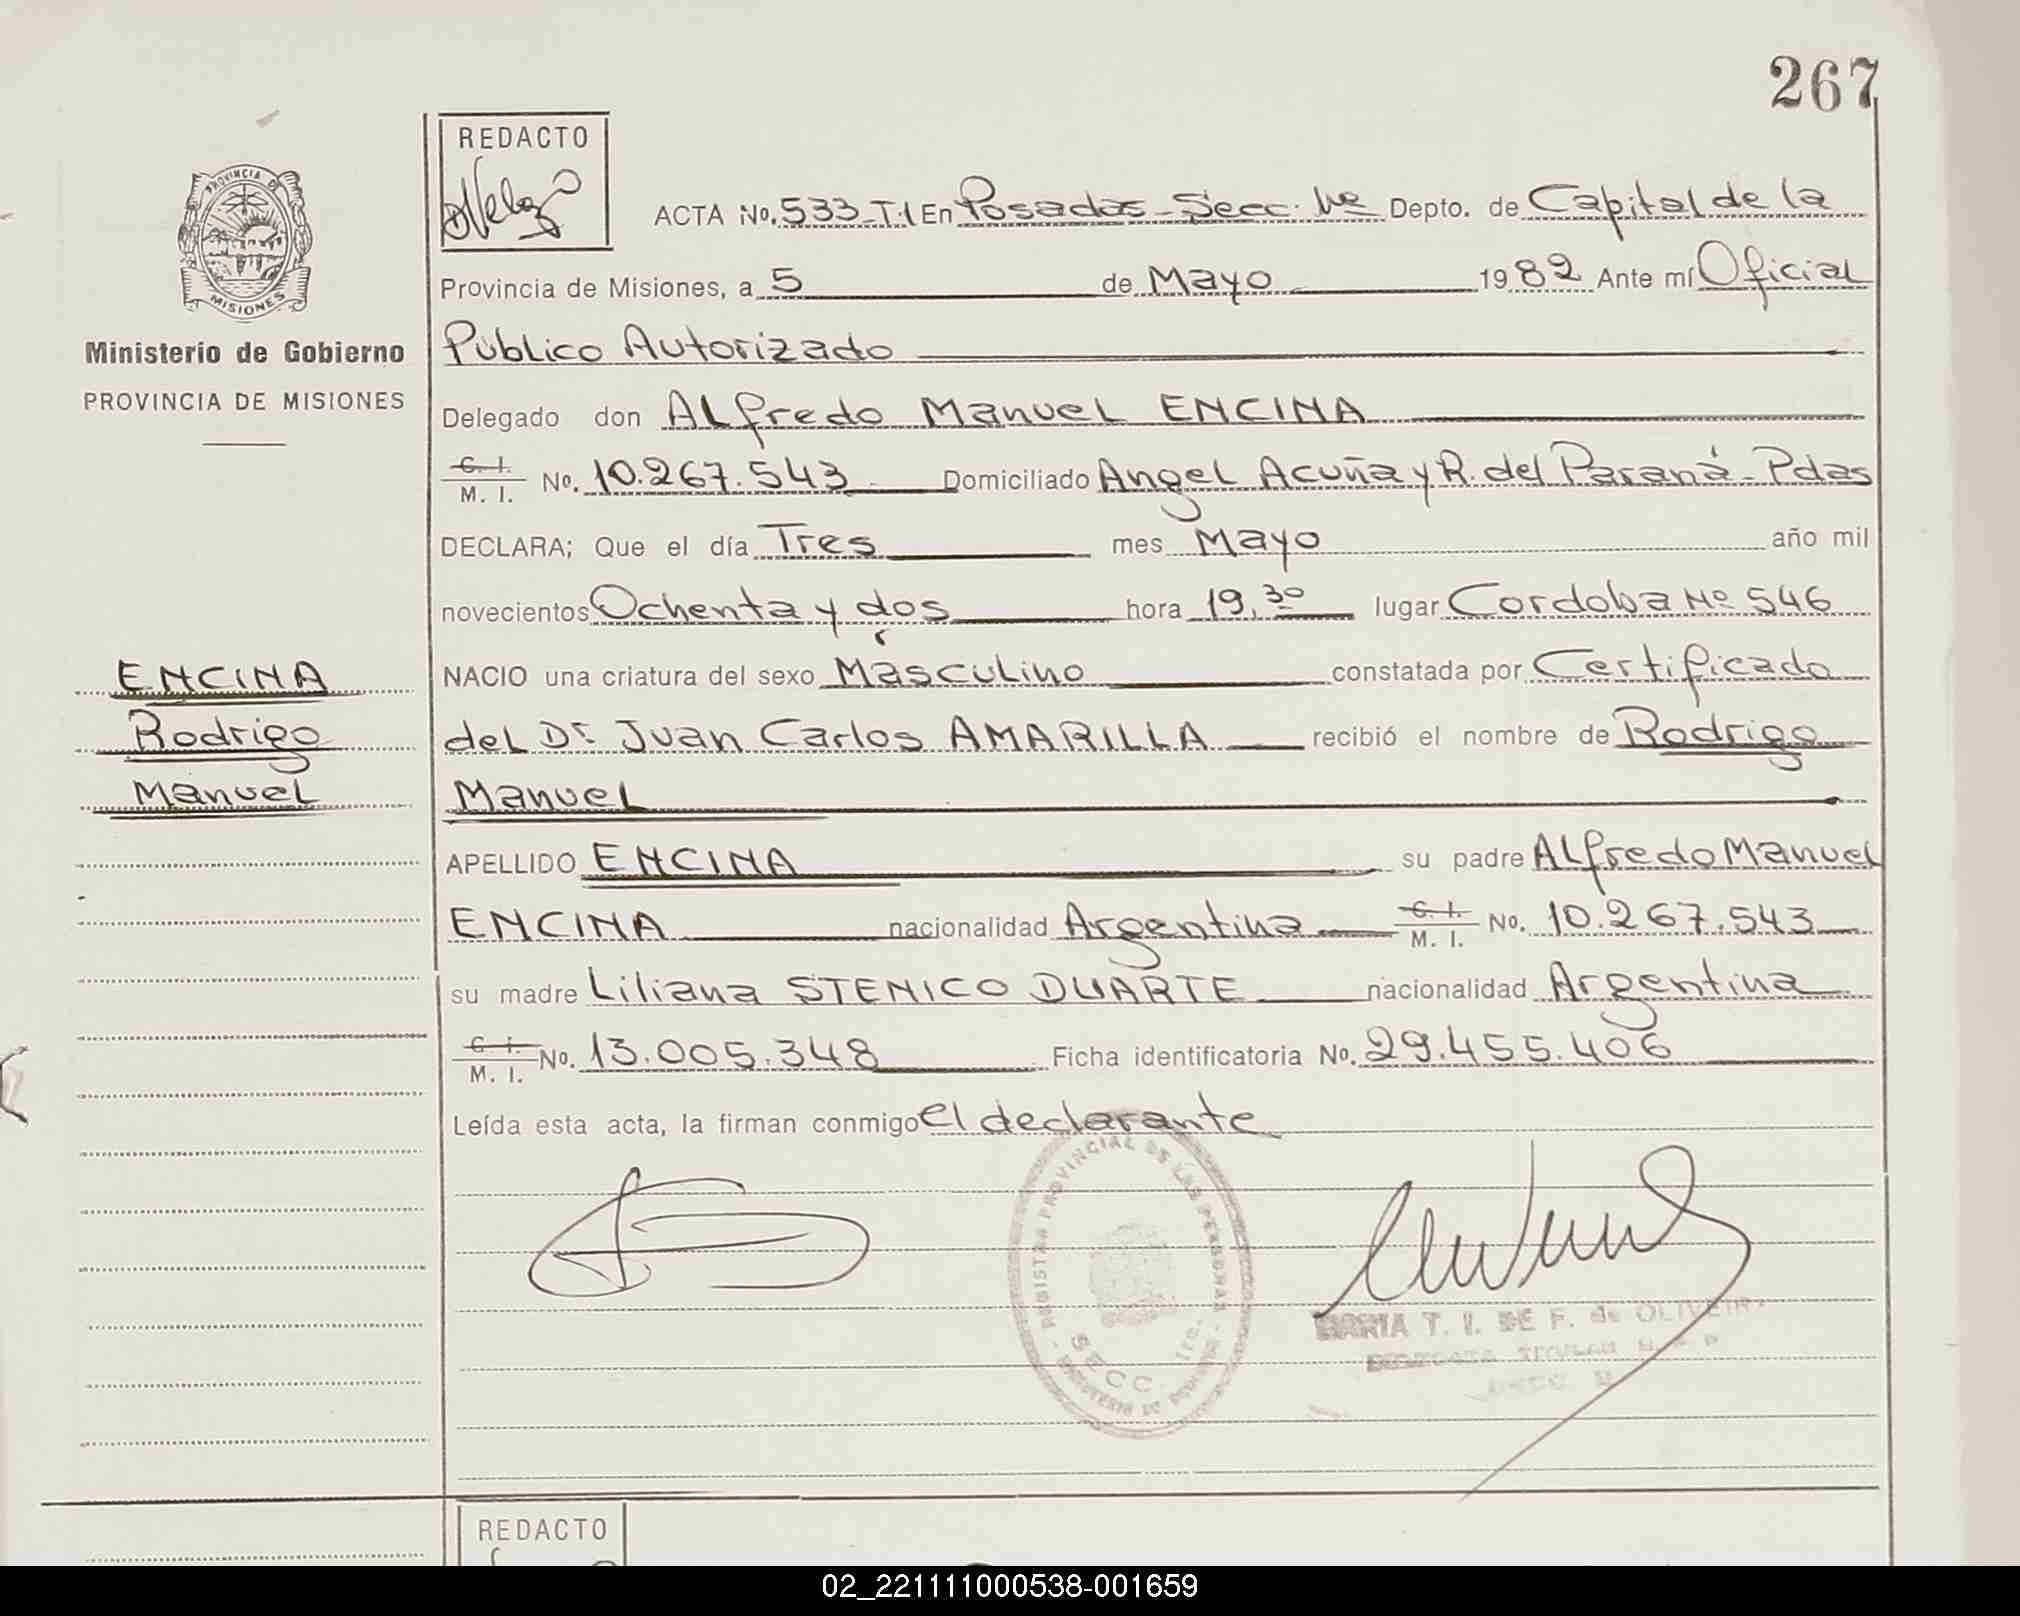 267
REDACTO
PROVINCIA DE
MISIONES
Ministerio de Gobierno
PROVINCIA DE MISIONES
ACTA No. 533-T.I En Posadas - Secc. 1ra Depto. de Capital de la
Provincia de Misiones, a 5 de Mayo 1982 Ante mí Oficial
Publico Autorizado
Delegado don ALfredo Manuel ENCINA
C. I.
M. I. No. 10.267.543 Domiciliado Angel Acuña y R. del Paraná - Pdas
DECLARA; Que el día Tres mes Mayo año mil
novecientos Ochenta y dos hora 19,30 lugar Cordoba No 546
NACIO una criatura del sexo Masculino constatada por Certificado
del Dr. Juan Carlos AMARILLA recibió el nombre de Rodrigo
Manuel
APELLIDO ENCINA su padre ALfredo Manuel
ENCINA nacionalidad Argentina C. I.
M. I. No. 10.267.543
su madre Liliana STENICO DUARTE nacionalidad Argentina
C. I.
M. I. No. 13.005.348 Ficha identificatoria No. 29.455.406
Leída esta acta, la firman conmigo el declarante
ENCINA
Rodrigo
Manuel
REGISTRO PROVINCIAL DE LAS PERSONAS
SECC. 1ra.
MARIA T. I. DE F. de OLIVEIRA
REDACTO
02_221111000538-001659